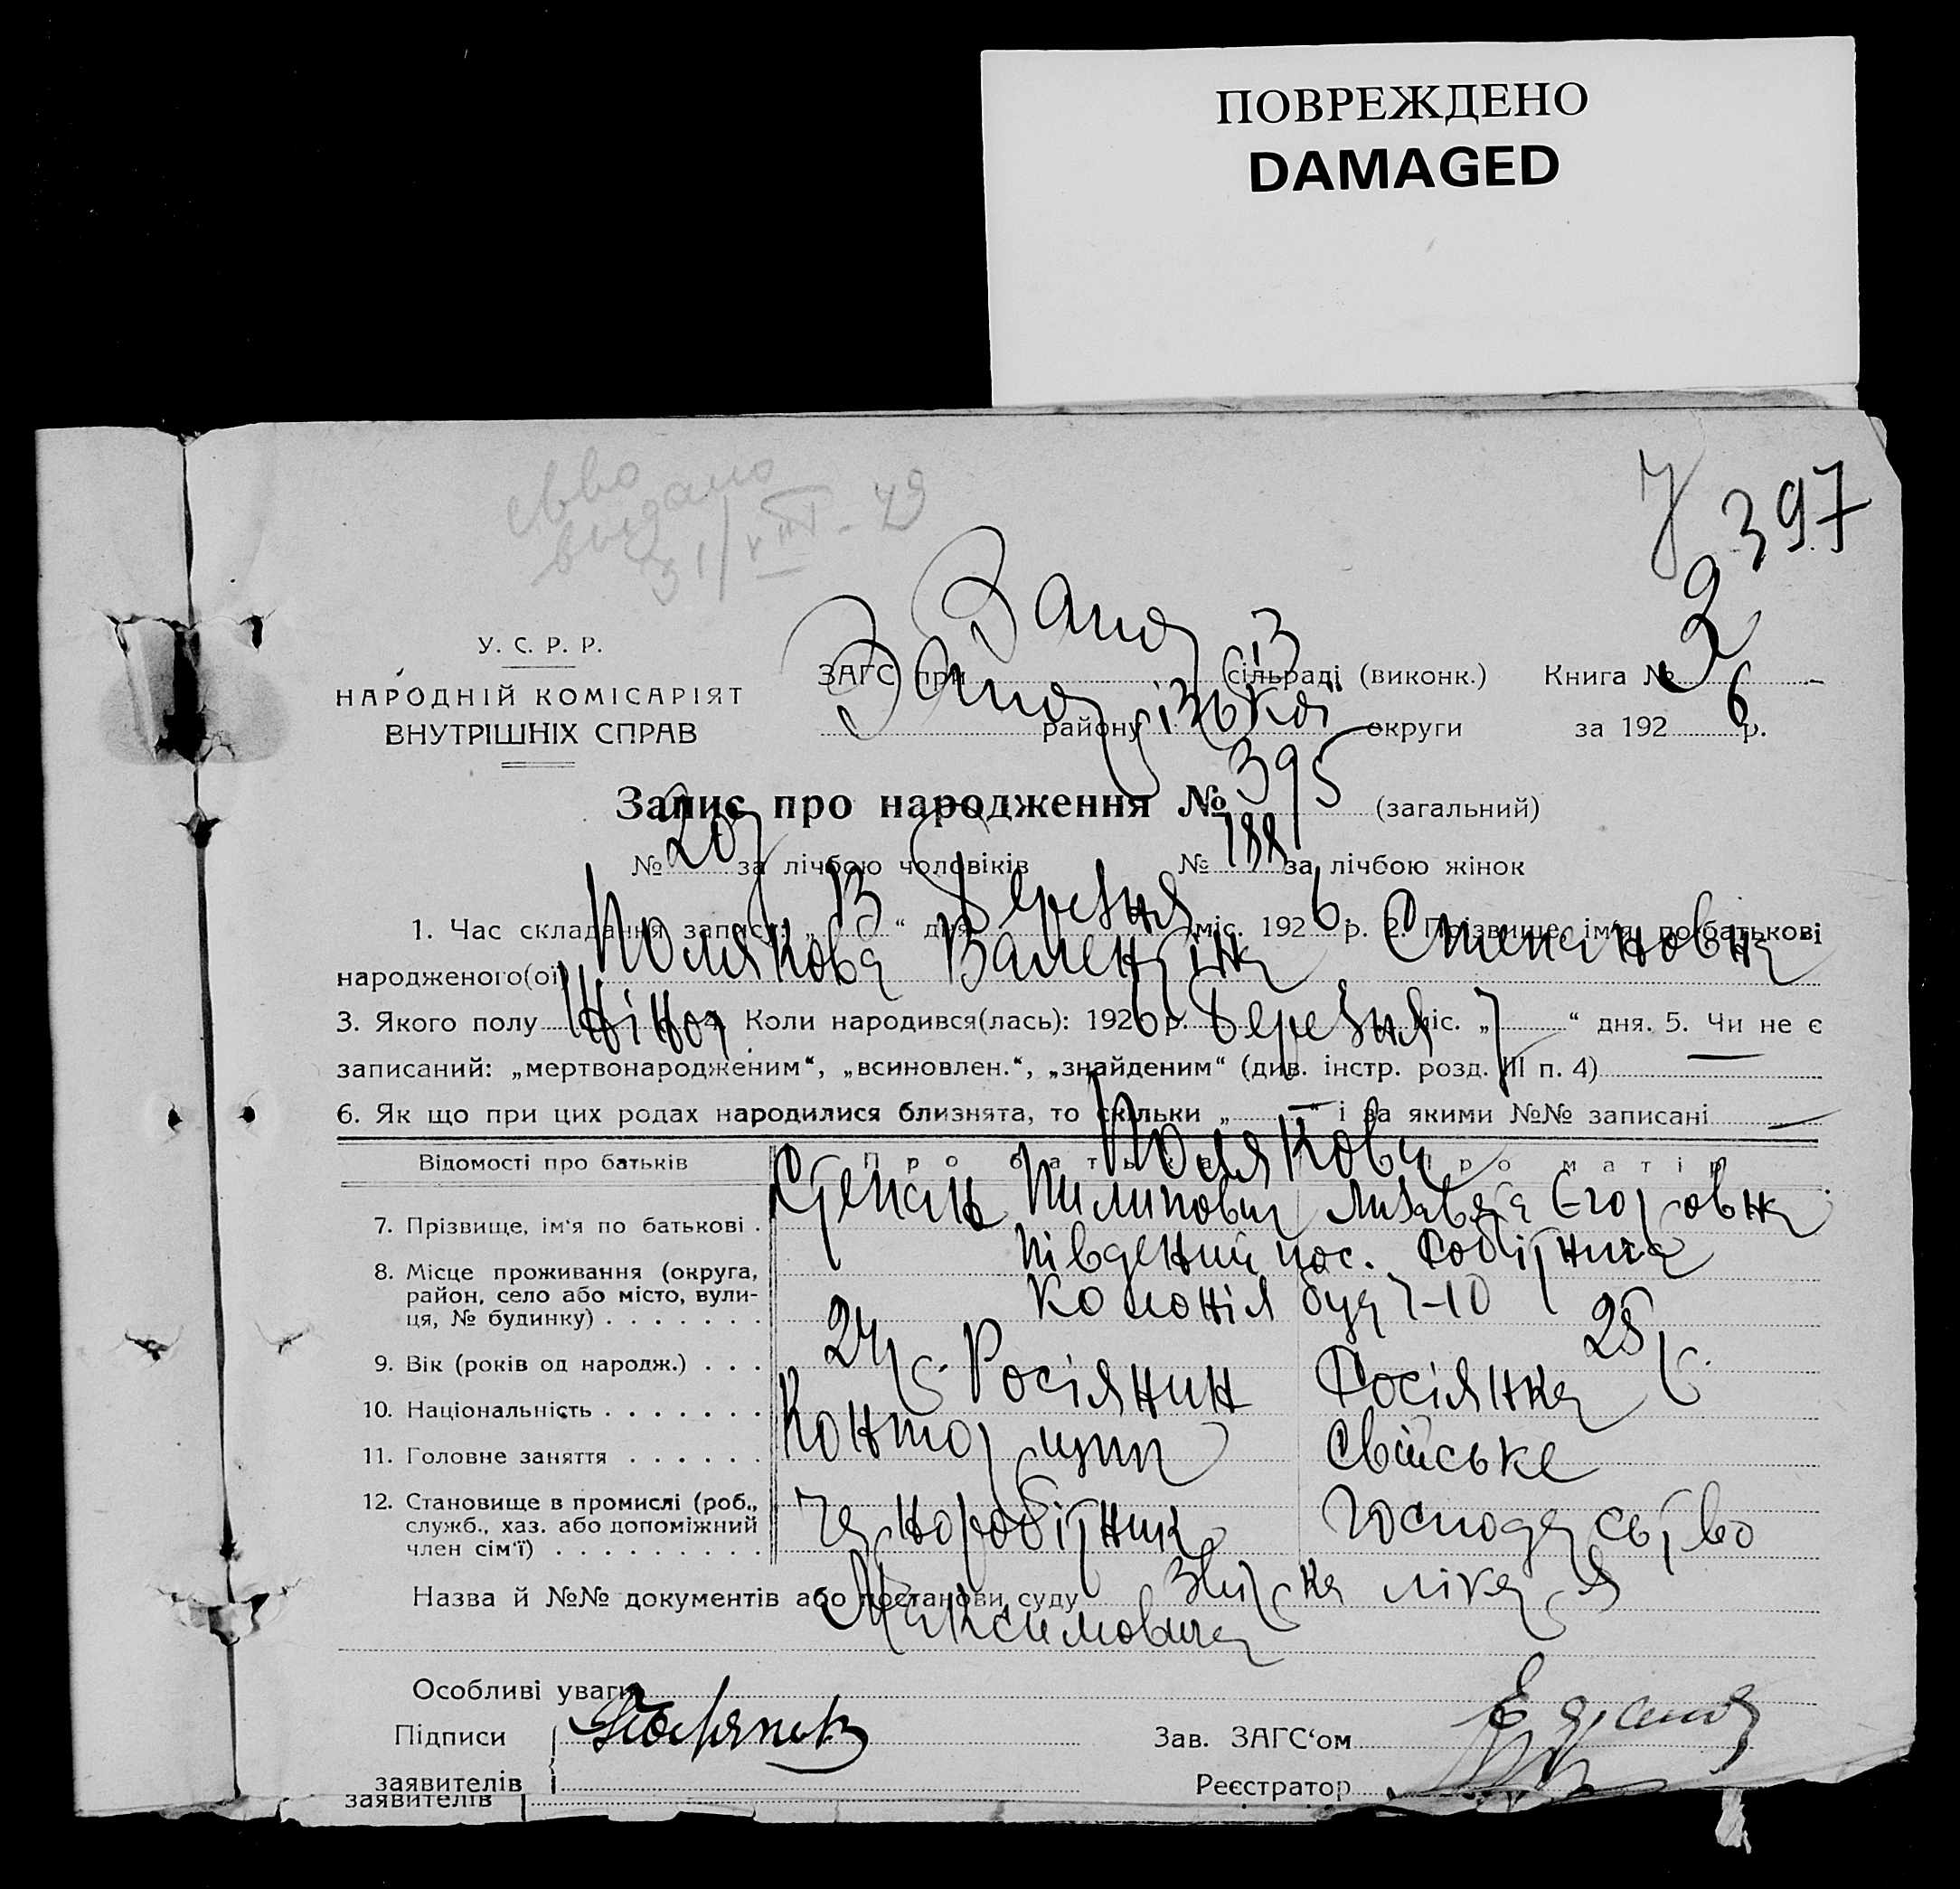 ПОВРЕЖДЕНО
DAMAGED
7 397
выдано
31/VIII-49
У. С. Р. Р.
НАРОДНІЙ КОМІСАРІЯТ
ВНУТРІШНІХ СПРАВ
ЗАГС при Запоріз сільраді (виконк.) Книга № 2
району Запорізької округи за 1926 р.
Запис про народження № 395 (загальний)
№ 207 за лічбою чоловіків № 188 за лічбою жінок
1. Час складання запису: „13“ дня Березня міс. 1926 р. 2. Прізвище, ім'я, по батькові
народженого(ої) Полякова Валентіна Степановна
3. Якого полу Жіноч 4. Коли народився(лась): 1926 р. Березня міс. „7“ дня. 5. Чи не є
записаний: „мертвонародженим“, „всиновлен.“, „знайденим“ (див. інстр. розд. III п. 4) —
6. Як що при цих родах народилися близнята, то скільки „—“ і за якими №№ записані —
Відомості про батьків Про батька Про матір
Полякови
7. Прізвище, ім'я по батькові . Степан Пилипович Лизавета Єгоровна
8. Місце проживання (округа, район, село або місто, вулиця, № будинку) . . . . . . . Південний пос. Робітнича
Колонія буд 7-10
9. Вік (років од народж.) . . . 24 р. 25 р.
10. Національність . . . . . . . Росіянин Росіянка
11. Головне заняття . . . . . . Конторщик Свійське
12. Становище в промислі (роб., служб., хаз. або допоміжний член сім'ї) . . . . . . . . . Чорноробітник Господарство
Назва й №№ документів або постанови суду Звістка лікаря
Максимовича
Особливі уваги
Підписи Поляков Зав. ЗАГС'ом
заявителів Реєстратор
заявителів